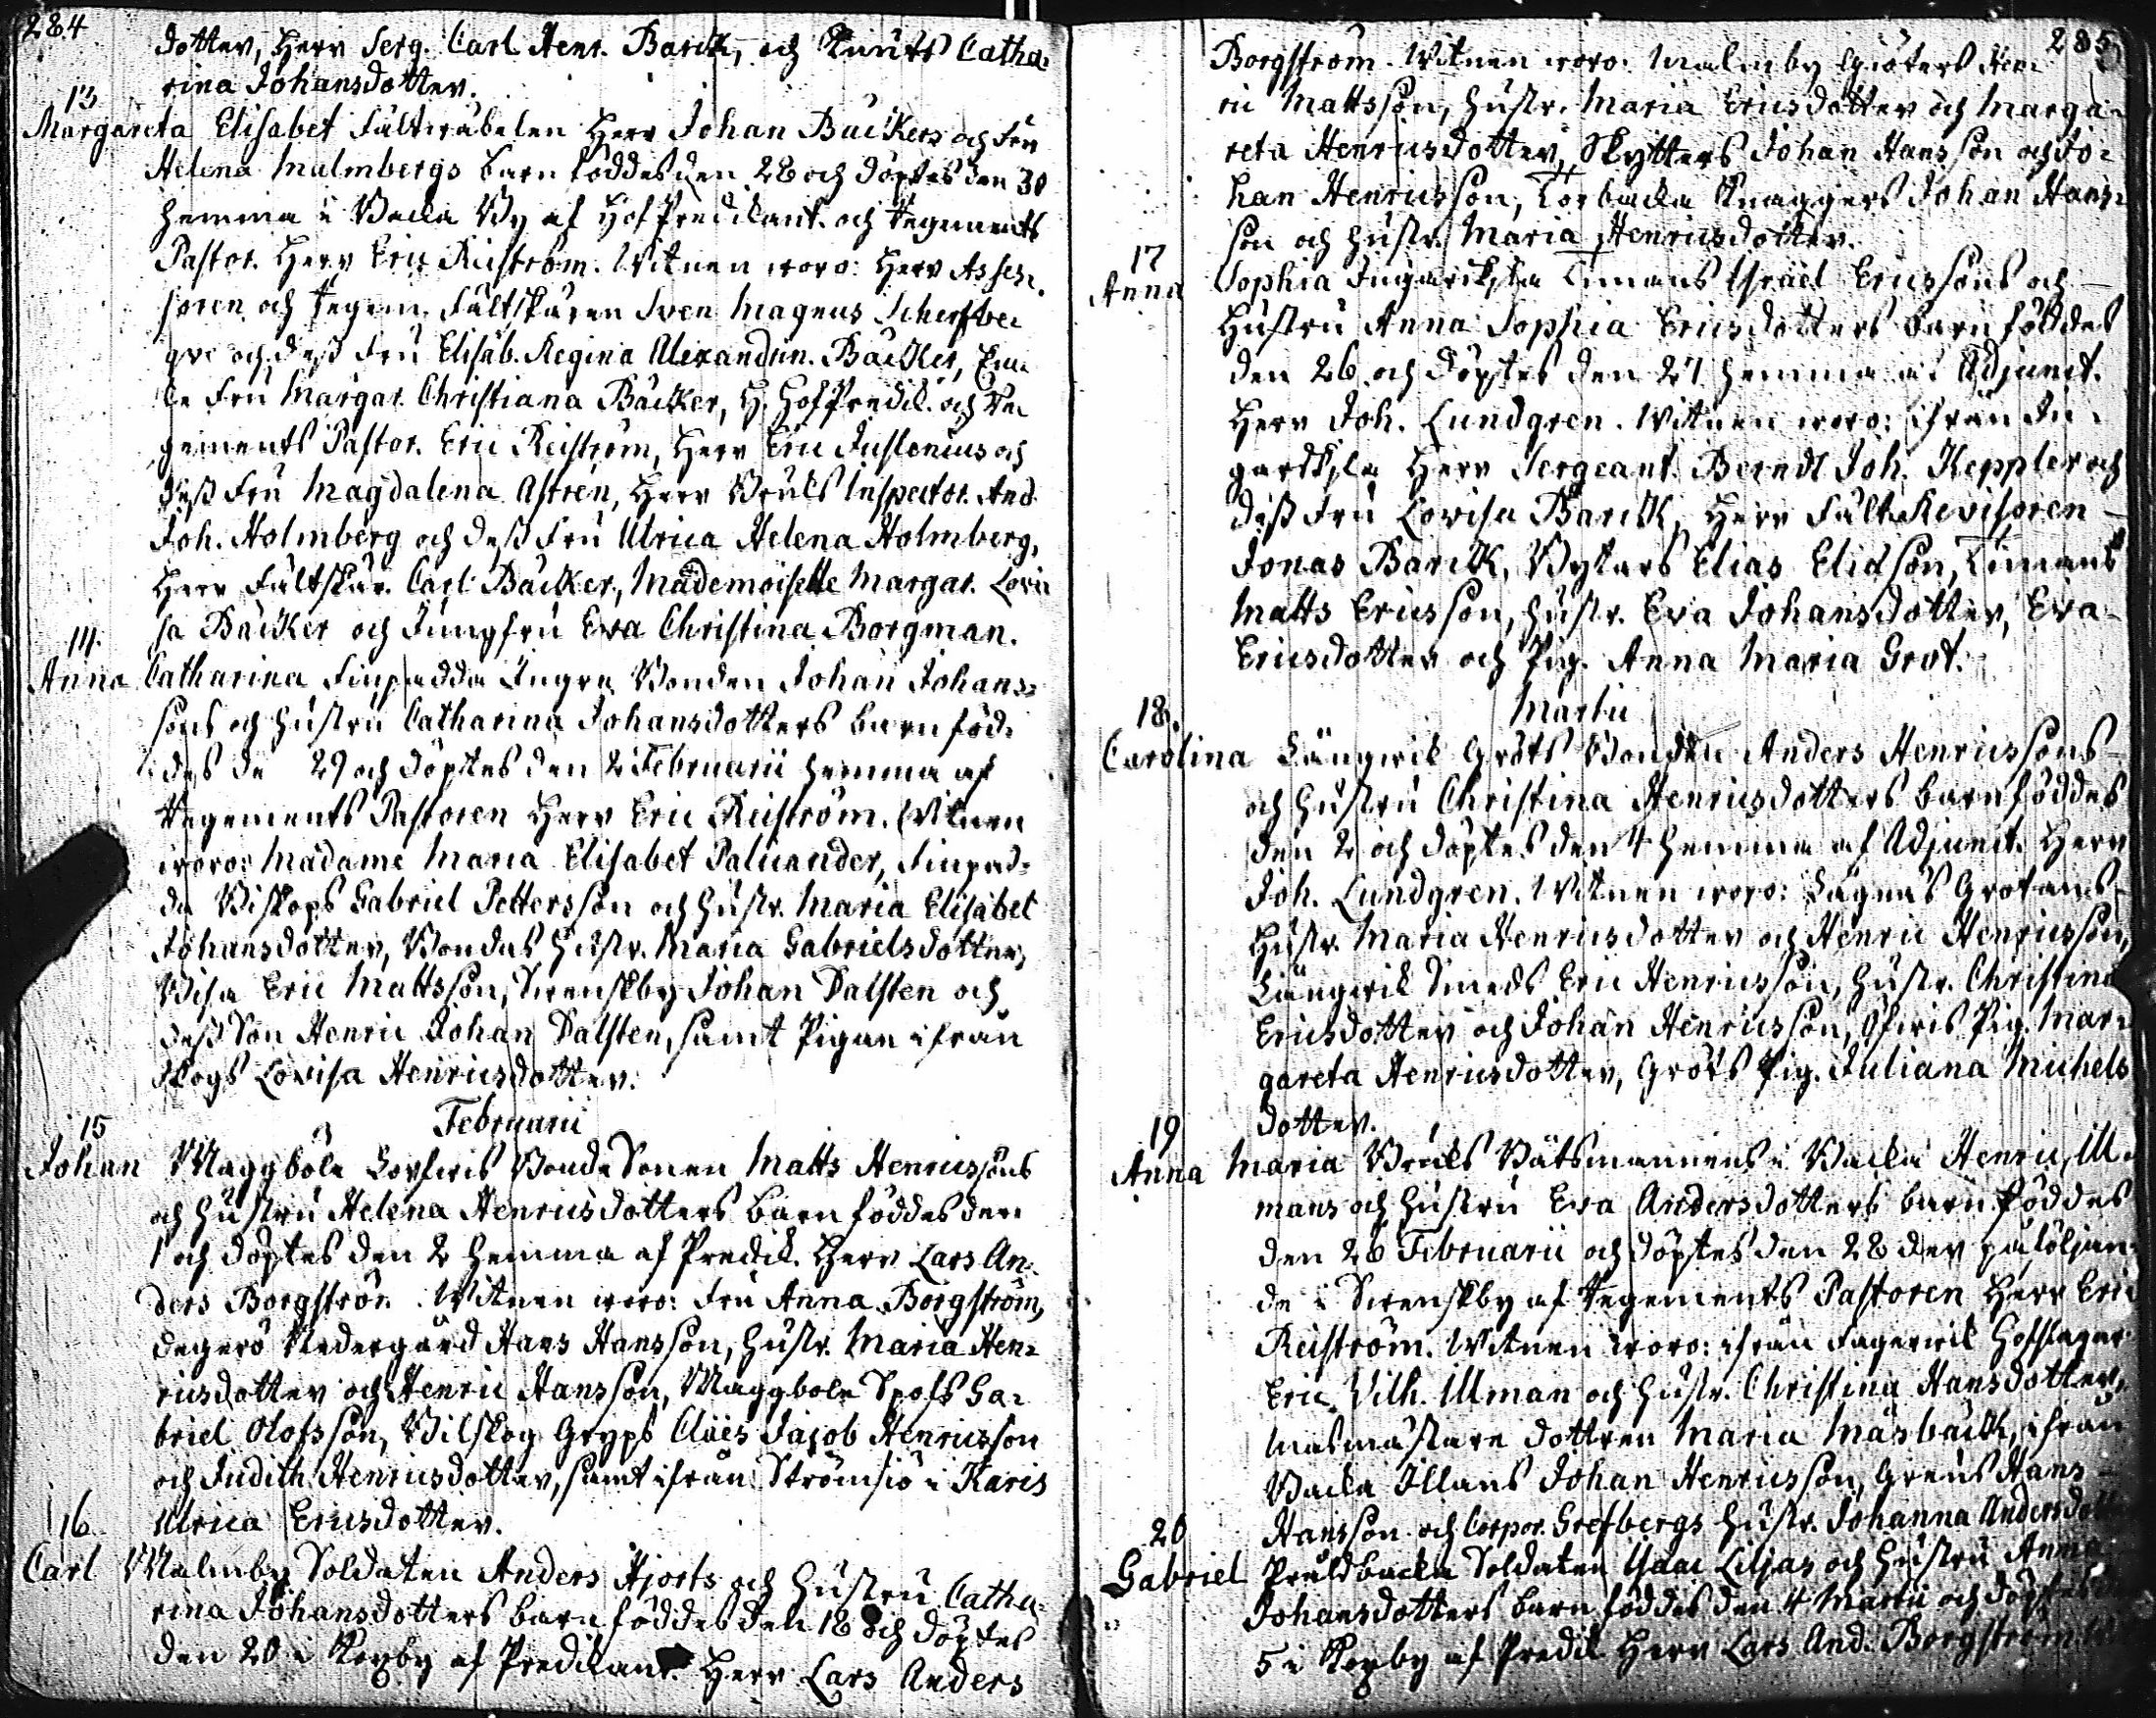 284
dotter, Herr Serg. Carl Henr. Barck, och Knuts Catha-
rina Johansdotter.
13
Margareta Elisabet Fältwäbelen Herr Johan Bäckers och Fru
Helena Malmbergs barn föddes den 28 och döptes den 30
hemma i Backa By af HofPredikant. och Regements
Pastor. Herr Eric Reiström. Witnen woro: Herr Asses-
soren och Regem. Fältskären Sven Magnus
och dess Fru Elisab. Regina Alexandrin. Bäcker,
Fru Margar. Christiana Bäcker, H. HofPredik. och Re-
gements Pastor. Eric Reiström, Herr Eric Juslenius och
dess Fru Magdalena Astren, Herr Bruks Inspector. And.
Joh. Holmberg och dess Fru Ulrica Helena Holmberg,
Herr Fältskär. Carl Bäcker, Mademoiselle Margar. Lovi-
sa Bäcker och Jungfru Eva Christina Borgman.
14.
Anna Catharina Finpadda Ingre Bonden Johan Johans-
sons och hustru Catharina Johansdotters barn föd-
des de 29 och döptes den 2 Februarii hemma af
Regements Pastoren Herr Eric Reiström. Witnen
woro: Madame Maria Elisabet Palicander, Finpad-
da Biskops Gabriel Pettersson och hustr. Maria Elisabet
Johansdotter, Bondas hustr. Maria Gabrielsdotter,
Wisa Eric Mattsson, Svenskby Johan Dalsten och
dess Son Henric Johan Dalsten, samt Pigan ifrån
Skogs Lovisa Henricsdotter.
Februarii
15
Johan Maggböle Lovfwis BondeSonen Matts Henricssons
och hustru Helena Henricsdotters barn föddes den
1 och döptes den 2 hemma af Predik. Herr Lars An-
ders Borgström. Witnen woro: Fru Anna Borgström,
Degerö Nedergård Hans Hansson, hustr. Maria Hen-
ricsdotter och Henric Hansson, Maggböle Spofs Ga-
briel Olofsson, Bilskog Gryps Claës Jacob Henricsson
och Judith Henricsdotter, samt ifrån Strömsiö i Karis
Ulrica Ericsdotter.
16.
Carl Malmby Soldaten Anders Hjorts och hustru Catha-
rina Johansdotters barn föddes den 18 och döptes
den 20 i Kopby af Predikant. Herr Lars Anders
285
Borgström. Witnen woro: Malmby Giöters Hen-
ric Mattsson, hustr. Maria Ericsdotter och Marga-
reta Henricsdotter, Skytters Johan Hansson och Jo-
han Henricsson, Torbacka Knaggers Johan Hans-
son och hustr. Maria Henricsdotter.
17
Anna Sophia Ingarskila Timans Israël Ericssons och
hustru Anna Sophia Ericsdotters barn föddes
den 26 och döptes den 27 hemma af Adjunct.
Herr Joh. Lundgren. Witnen woro: ifrån In-
garskila Herr Sergeant. Berndt Joh. Keppler och
dess Fru Lovisa Barck, Herr Fält Revisoren
Jonas Barck, Bytars Elias Elidson, Timans
Matts Ericsson, hustr. Eva Johansdotter, Eva
Ericsdotter och Pig. Anna Maria Grot.
Martii
18.
Carolina Långwik Gröts Bonden Anders Henricssons
och hustru Christina Henricsdotters barn föddes
den 2 och döptes den 4 hemma af Adjunct. Herr
Joh. Lundgren. Witnen woro: Lägnäs Grotans
hustr. Maria Henricsdotter och Henric Henricsson,
Långwik Smeds Eric Henricsson, hustr. Christina
Ericsdotter och Johan Henricsson, Ofwis Pig. Mar-
gareta Henricsdotter, Gröts Pig. Juliana Michels
dotter.
19
Anna Maria Bruks Båtsmannens i Backa Henric Ill-
mans och hustru Eva Andersdotters barn föddes
den 26 Februarii och döptes den 28 der påföljan-
de i Svenskby af Regements Pastoren Herr Eric
Reiström. Witnen woro: ifrån Fagerwik Hofslagar.
Eric Vilh. Illman och hustr. Christina Hansdotter,
Masmästare dottren Maria Masbäck, ifrån
Backa Illans Johan Henricsson, Grens Hans
Hansson och Corpor. Grefbergs hustr. Johanna Andersdotter
20
Gabriel Soldaten Isaac Liljas och hustru Anna
Johansdotters barn föddes den 4 Martii och döptes
5 i Kopby af Predik Herr Lars And. Borgström.